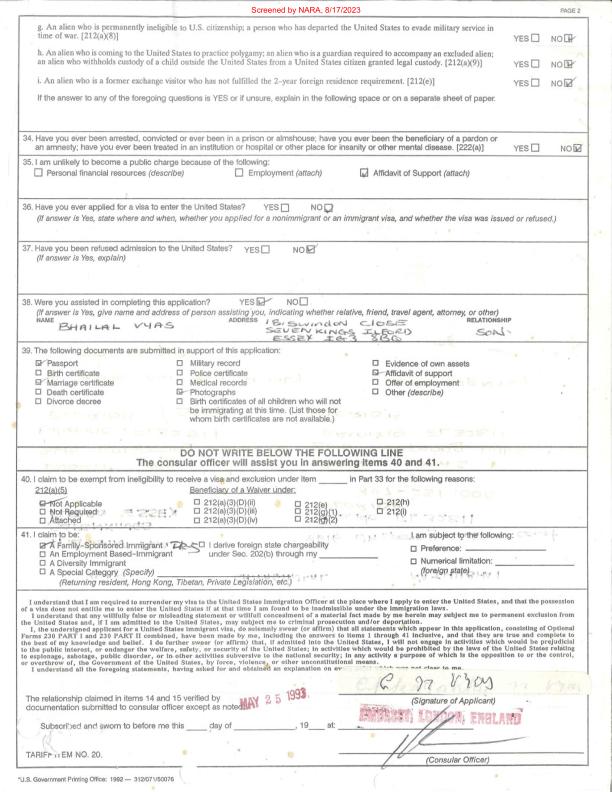 Screened by NARA, 8/17/2023
PAGE 2
g. An alien who is permanently ineligible to U.S. citizenship; a person who has departed the United States to evade military service in
time of war. [212(a)(8)] YES☐ NO☑
h. An alien who is coming to the United States to practice polygamy; an alien who is a guardian required to accompany an excluded alien;
an alien who withholds custody of a child outside the United States from a United States citizen granted legal custody. [212(a)(9)] YES☐ NO☑
i. An alien who is a former exchange visitor who has not fulfilled the 2-year foreign residence requirement. [212(e)] YES☐ NO☑
If the answer to any of the foregoing questions is YES or if unsure, explain in the following space or on a separate sheet of paper.
34. Have you ever been arrested, convicted or ever been in a prison or almshouse; have you ever been the beneficiary of a pardon or
an amnesty; have you ever been treated in an institution or hospital or other place for insanity or other mental disease. [222(a)] YES☐ NO☑
35. I am unlikely to become a public charge because of the following:
☐ Personal financial resources (describe) ☐ Employment (attach) ☑ Affidavit of Support (attach)
36. Have you ever applied for a visa to enter the United States? YES☐ NO☑
(If answer is Yes, state where and when, whether you applied for a nonimmigrant or an immigrant visa, and whether the visa was issued or refused.)
37. Have you been refused admission to the United States? YES☐ NO☑
(If answer is Yes, explain)
38. Were you assisted in completing this application? YES☑ NO☐
(If answer is Yes, give name and address of person assisting you, indicating whether relative, friend, travel agent, attorney, or other)
NAME ADDRESS RELATIONSHIP
BHAILAL VYAS 18 SWINDON CLOSE
SEVEN KINGS ILFORD SON
ESSEX IG3
39. The following documents are submitted in support of this application:
☑ Passport ☐ Military record ☐ Evidence of own assets
☐ Birth certificate ☐ Police certificate ☑ Affidavit of support
☑ Marriage certificate ☐ Medical records ☐ Offer of employment
☐ Death certificate ☑ Photographs ☐ Other (describe)
☐ Divorce decree ☐ Birth certificates of all children who will not
be immigrating at this time. (List those for
whom birth certificates are not available.)
DO NOT WRITE BELOW THE FOLLOWING LINE
The consular officer will assist you in answering items 40 and 41.
40. I claim to be exempt from ineligibility to receive a visa and exclusion under item ______ in Part 33 for the following reasons:
212(a)(5) Beneficiary of a Waiver under:
☑ Not Applicable ☐ 212(a)(3)(D)(ii) ☐ 212(e) ☐ 212(h)
☐ Not Required ☐ 212(a)(3)(D)(iii) ☐ 212(g)(1) ☐ 212(i)
☐ Attached ☐ 212(a)(3)(D)(iv) ☐ 212(g)(2)
41. I claim to be: I am subject to the following:
☑ A Family-Sponsored Immigrant ☐ I derive foreign state chargeability ☐ Preference:
☐ An Employment Based-Immigrant under Sec. 202(b) through my ☐ Numerical limitation:
☐ A Diversity Immigrant (foreign state)
☐ A Special Category (Specify)
(Returning resident, Hong Kong, Tibetan, Private Legislation, etc.)
I understand that I am required to surrender my visa to the United States Immigration Officer at the place where I apply to enter the United States, and that the possession
of a visa does not entitle me to enter the United States if at that time I am found to be inadmissible under the immigration laws.
I understand that any willfully false or misleading statement or willful concealment of a material fact made by me herein may subject me to permanent exclusion
from the United States and, if I am admitted to the United States, may subject me to criminal prosecution and/or deportation.
I, the undersigned applicant for a United States immigrant visa, do solemnly swear (or affirm) that all statements which appear in this application, consisting of Optional
Forms 230 PART I and 230 PART II combined, have been made by me, including the answers to items 1 through 41 inclusive, and that they are true and complete to
the best of my knowledge and belief. I do further swear (or affirm) that, if admitted into the United States, I will not engage in activities which would be prejudicial
to the public interest, or endanger the welfare, safety, or security of the United States; in activities which would be prohibited by the laws of the United States relating
to espionage, sabotage, public disorder, or in other activities subversive to the national security; in any activity a purpose of which is the opposition to or the control,
or overthrow of, the Government of the United States, by force, violence, or other unconstitutional means.
I understand all the foregoing statements, having asked for and obtained an explanation on
The relationship claimed in items 14 and 15 verified by
documentation submitted to consular officer except as noted
MAY 25 1993
Vyas
(Signature of Applicant)
LONDON, ENGLAND
Subscribed and sworn to before me this ____ day of ________, 19 __ at:
TARIFF ITEM NO. 20.
(Consular Officer)
*U.S. Government Printing Office: 1992 — 312/071/50076